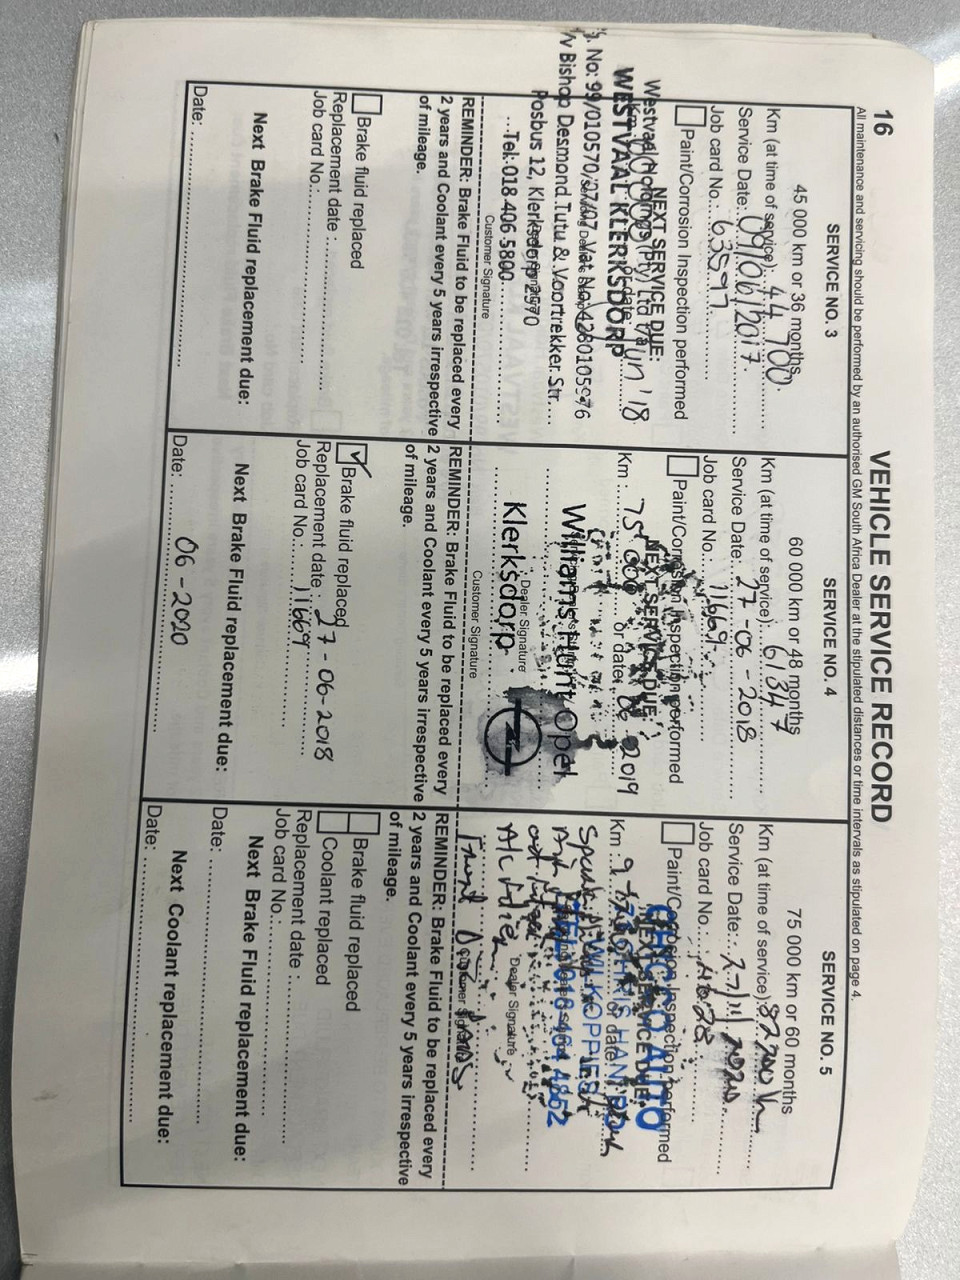 16
VEHICLE SERVICE RECORD
All maintenance and servicing should be performed by an authorised GM South Africa Dealer at the stipulated distances or time intervals as stipulated on page 4.
SERVICE NO. 3
45 000 km or 36 months
Km (at time of service): 44 700
Service Date: 09/06/2017
Job card No.: 63597
Paint/Corrosion Inspection performed
NEXT SERVICE DUE:
Westvaal Holdings (Pty) Ltd t/a
WESTVAAL KLERKSDORP
Jun '18
No: 99/010570/07/07 Vat. No. 4280105976
Bishop Desmond Tutu & Voortrekker Str
Posbus 12, Klerksdorp 2570
Tel: 018 406 5800
Customer Signature
REMINDER: Brake Fluid to be replaced every
2 years and Coolant every 5 years irrespective
of mileage.
Brake fluid replaced
Replacement date :
Job card No.:
Next Brake Fluid replacement due:
Date:
SERVICE NO. 4
60 000 km or 48 months
Km (at time of service): 61347
Service Date: 27-06-2018
Job card No.: 11669
Paint/Corrosion Inspection performed
NEXT SERVICE DUE
Km : 75 000 or date: 06 2019
Williams Hunt Opel
Dealer Signature
Klerksdorp
Customer Signature
REMINDER: Brake Fluid to be replaced every
2 years and Coolant every 5 years irrespective
of mileage.
Brake fluid replaced
Replacement date : 27-06-2018
Job card No.: 11669
Next Brake Fluid replacement due:
Date: 06-2020
SERVICE NO. 5
75 000 km or 60 months
Km (at time of service): 87200
Service Date: 27/11/2020
Job card No.
Paint/Corrosion Inspection performed
AUTO
Km
CHRIS HANI
WILKOPPIES
TEL: 018 464 4852
Dealer Signature
Customer Signature
REMINDER: Brake Fluid to be replaced every
2 years and Coolant every 5 years irrespective
of mileage.
Brake fluid replaced
Coolant replaced
Replacement date :
Job card No.:
Next Brake Fluid replacement due:
Date:
Next Coolant replacement due:
Date: